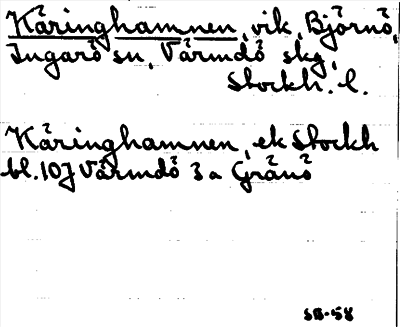 Käringhamnen, vik, Björnö,
Ingarö sn, Värmdö skg,
Stockh. l.
Käringhamnen, ek Stockh
bl. 10J Värmdö 3 a Gränö
SB-58